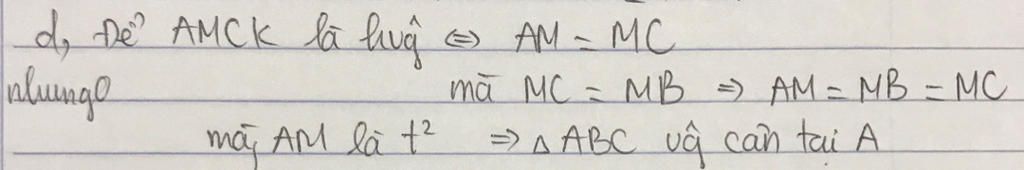 d, Để AMCK là hvg̃ <=> AM = MC
mà MC = MB => AM = MB = MC
mà, AM là t² => △ ABC vg̃ cân tại A